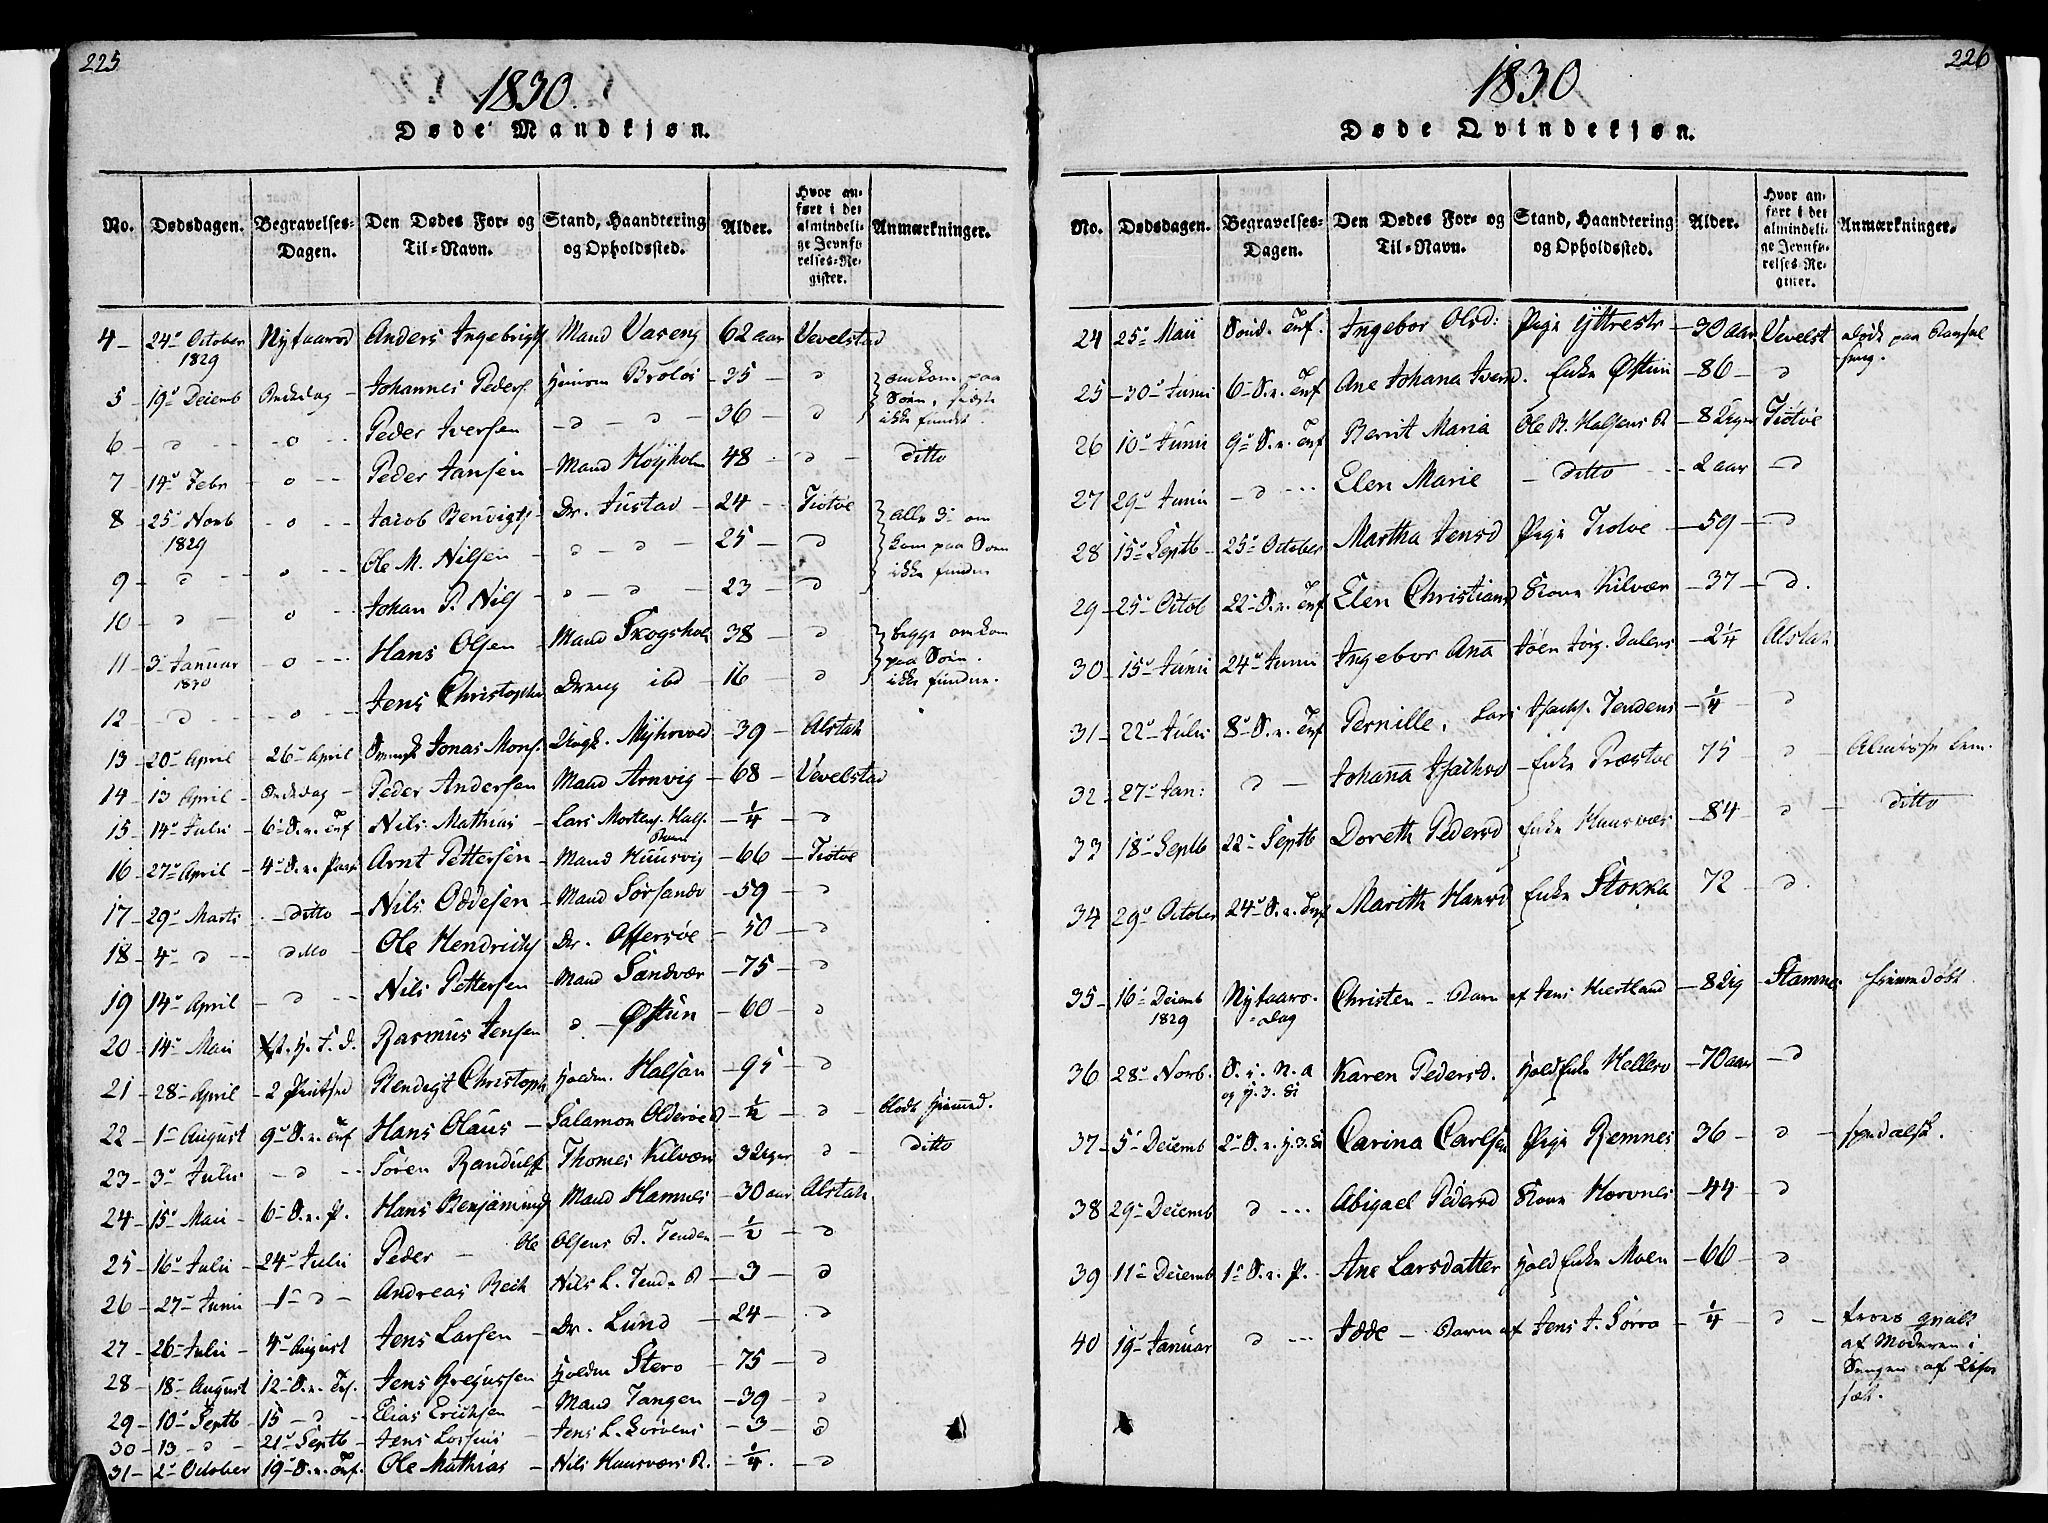 225
1830.
Døde Mandkjøn.
No. Dødsdagen. Begravelses-Dagen. Den Dødes For- og Til-Navn. Stand, Haandtering og Opholdssted. Alder. Hvor anført i det almindelige Jevnførelses-Register. Anmærkninger.
4 - 24 October 1829 Nytaarsd Anders Ingebrigts Mand Vaseng 62 aar Vevelstad
5 - 19 Decemb Onsdag - Johannes Peders Huusm Broløs - 25 - d omkom paa Søen, ikke fundet.
6 - d - o - Peder Iversen - d - d - 36 - d
7 - 14 Febr - o - Peder Jansen - Mand Høyholm 48 - d - ditto
8 - 25 Novb 1829 - o - Jacob Benvigts Dr. Tustad - 24 - Tiøtøe alle 3 omkom paa Søen ikke funden
9 - d - o - Ole M. Nilsen - d - d - 25 - d
10 - d - o - Johan P. Nils - d - d - 23 - d
11 - 3 Januar 1830 - o - Hans Olsen - Mand Skogsholm 38 - d begge omkom paa Søen. ikke fundne.
12 - d - o - Jens Christopher Dreng ibd - 16 - d
13 - 20 April - 26 April Svensk Jonas Mons. Myhrvold - 39 - Alstah
14 - 13 April - Onsdag - Peder Andersen Mand Arnvig - 68 - Vevelstad
15 - 14 Julii - 6 S. e. Trf Nils Mathias - Lars Mortens. Hals. Barn - 1/4 - d
16 - 27 April - 4 S. e. Paas Arnt Pettersen - Mand Huusvig - 66 - Tiøtøe
17 - 29 Marts - ditto - Nils Oddesen - Mand Sørsandv - 59 - d
18 - 4 d - ditto - Ole Hendrichs Dr. Offersøe - 50 - d
19 - 14 April - d - Nils Pettersen - Mand Sandvær - 75 - d
20 - 14 Maii Rasmus Jensen d - Østun - 60 - d
21 - 28 April - 2 Pintsed Bendigt Christoph Holdm. Halsan - 95 - d
22 - 1 August 9 S. e. Trf Hans Olaus - Salamon Olderøe B - 1/2 - d -
23 - 3 Julii - d - Søren Randulf Thomes Kilvær - 3 Uger - d - ditto
24 - 15 Maii - 6 S. e. P. Hans Benjamins Mand Hamnes - 30 aar Alstah.
25 - 16 Julii - 24 Julii Peder - Ole Olsens B. Tenden - 1/2 - d
26 - 27 Junii - 1 d - Andreas Bech Nils L. Tend. B - 3 - d
27 - 26 Julii - 4 August Jens Larsen - Dr. Lund - 24 - d
28 - 18 August 12 S. e. Trf. Jens Gregussen Holdm Stero - 75 - d
29 - 10 Septb 15 - d - Elias Erichsen - Mand Tangen - 39 - d
30 - 13 - d - 21 Septb - Jens - Jens L. - 3 - d
31 - 2 October 19 S. e. Trf. Ole Mathias - Nils Huusværs B. - 1/4 - d
226
1830
Døde Qvindekjøn.
No. Dødsdagen. Begravelses-Dagen. Den Dødes For- og Til-Navn. Stand, Haandtering og Opholdssted. Alder. Hvor anført i det almindelige Jevnførelses-Register. Anmærkninger.
24 25 Maii Ingebor Olsd: Pige - 30 aar Vevelst Døde paa Barselseng.
25 - 30 Junii 6 S. e. Trf Ane Johana Iversd. Enke Østun - 86 - d
26 10 Junii 9 S. e. Trf Berrit Maria Ole B. Halsens B - 8 Uger Tiøtøe
27 29 Junii - d - Elen Marie - ditto - 2 aar - d
28 15 Septb - 25 October Martha Jensd Pige Tiøtøe - 59 - d
29 - 25 Octob 22 S. e. Trf Elen Christiand Kone Kilvær - 37 - d.
30 15 Junii 24 Junii Ingebor Ana - 2 1/4 Alstah
31 - 22 Julii 8 S. e. Trf Pernille, Lars Isachs. Tendens - 1/4 - d
32 - 27 Jan: d - Johana Isachsd - Enke Præstøe 75 d -
33 18 Septb 22 Septb Doreth Pedersd Enke Huusvær - 84 - d - ditto
34 29 October 24 S. e. Trf Marith Hansd Enke Stokka 72 - d.
35 - 16 Decemb 1829 Nytaarsdag Christen - Barn af Jens Hiertland - 8 Dg - Stamnes hiemmedøbt
36 28 Novb. S. i. N. A og H. 3. K Karen Pedersd. Hold Enke Hellesv - 70 aar - d
37 - 5 Decemb 2 S. e. H. 3. K Carina Carlsen Pige Remnes 36 - d - spedalsk.
38 29 Decemb d - Abigael Pedersd Kone Hervnes - 44 - d
39 11 Decemb 1 S. e. P. - Ane Larsdatter Hold Enke Moen - 66 - d
40 19 Januar d - Idde - Barn af Jens J. Sørra - 1/4 - d - troes qvalt af Moderen i Sengen af